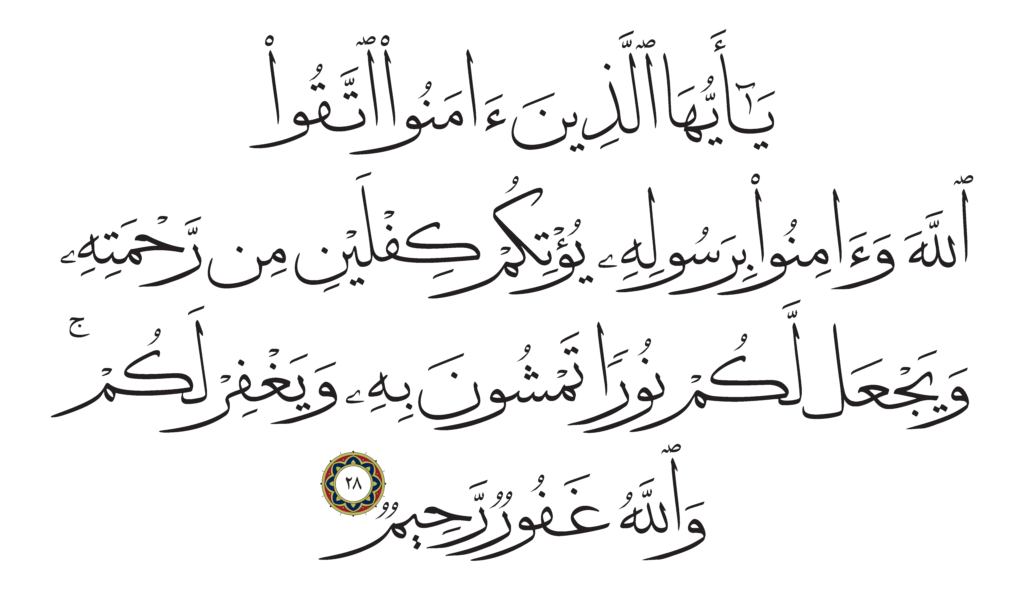 يَـٰٓأَيُّهَا ٱلَّذِينَ ءَامَنُوا۟ ٱتَّقُوا۟
ٱللَّهَ وَءَامِنُوا۟ بِرَسُولِهِۦ يُؤْتِكُمْ كِفْلَيْنِ مِن رَّحْمَتِهِۦ
وَيَجْعَل لَّكُمْ نُورًا تَمْشُونَ بِهِۦ وَيَغْفِرْ لَكُمْ ۚ
وَٱللَّهُ غَفُورٌ رَّحِيمٌ ٢٨